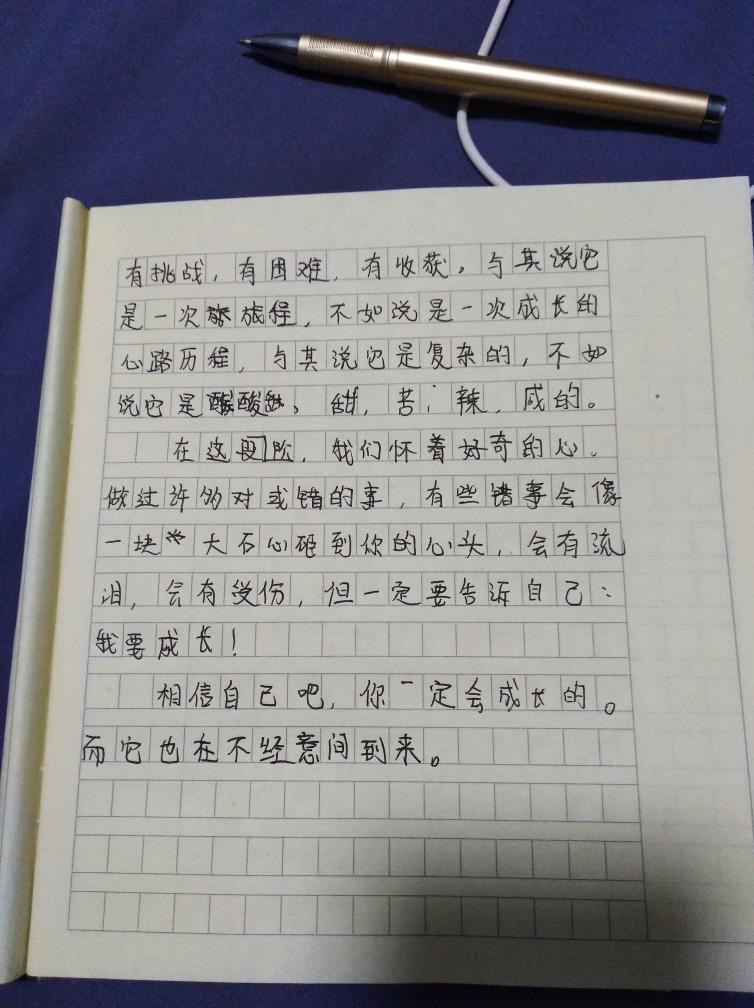 有挑战，有困难，有收获。与其说它
是一次旅程，不如说是一次成长的
心路历程，与其说它是复杂的，不如
说它是酸、甜、苦、辣、咸的。
在这段阶，我们怀着好奇的心。
做过许多对或错的事，有些错事会像
一块大石心砸到你的心头，会有流
泪，会有受伤，但一定要告诉自己：
我要成长！
相信自己吧，你一定会成长的。
而它也在不经意间到来。